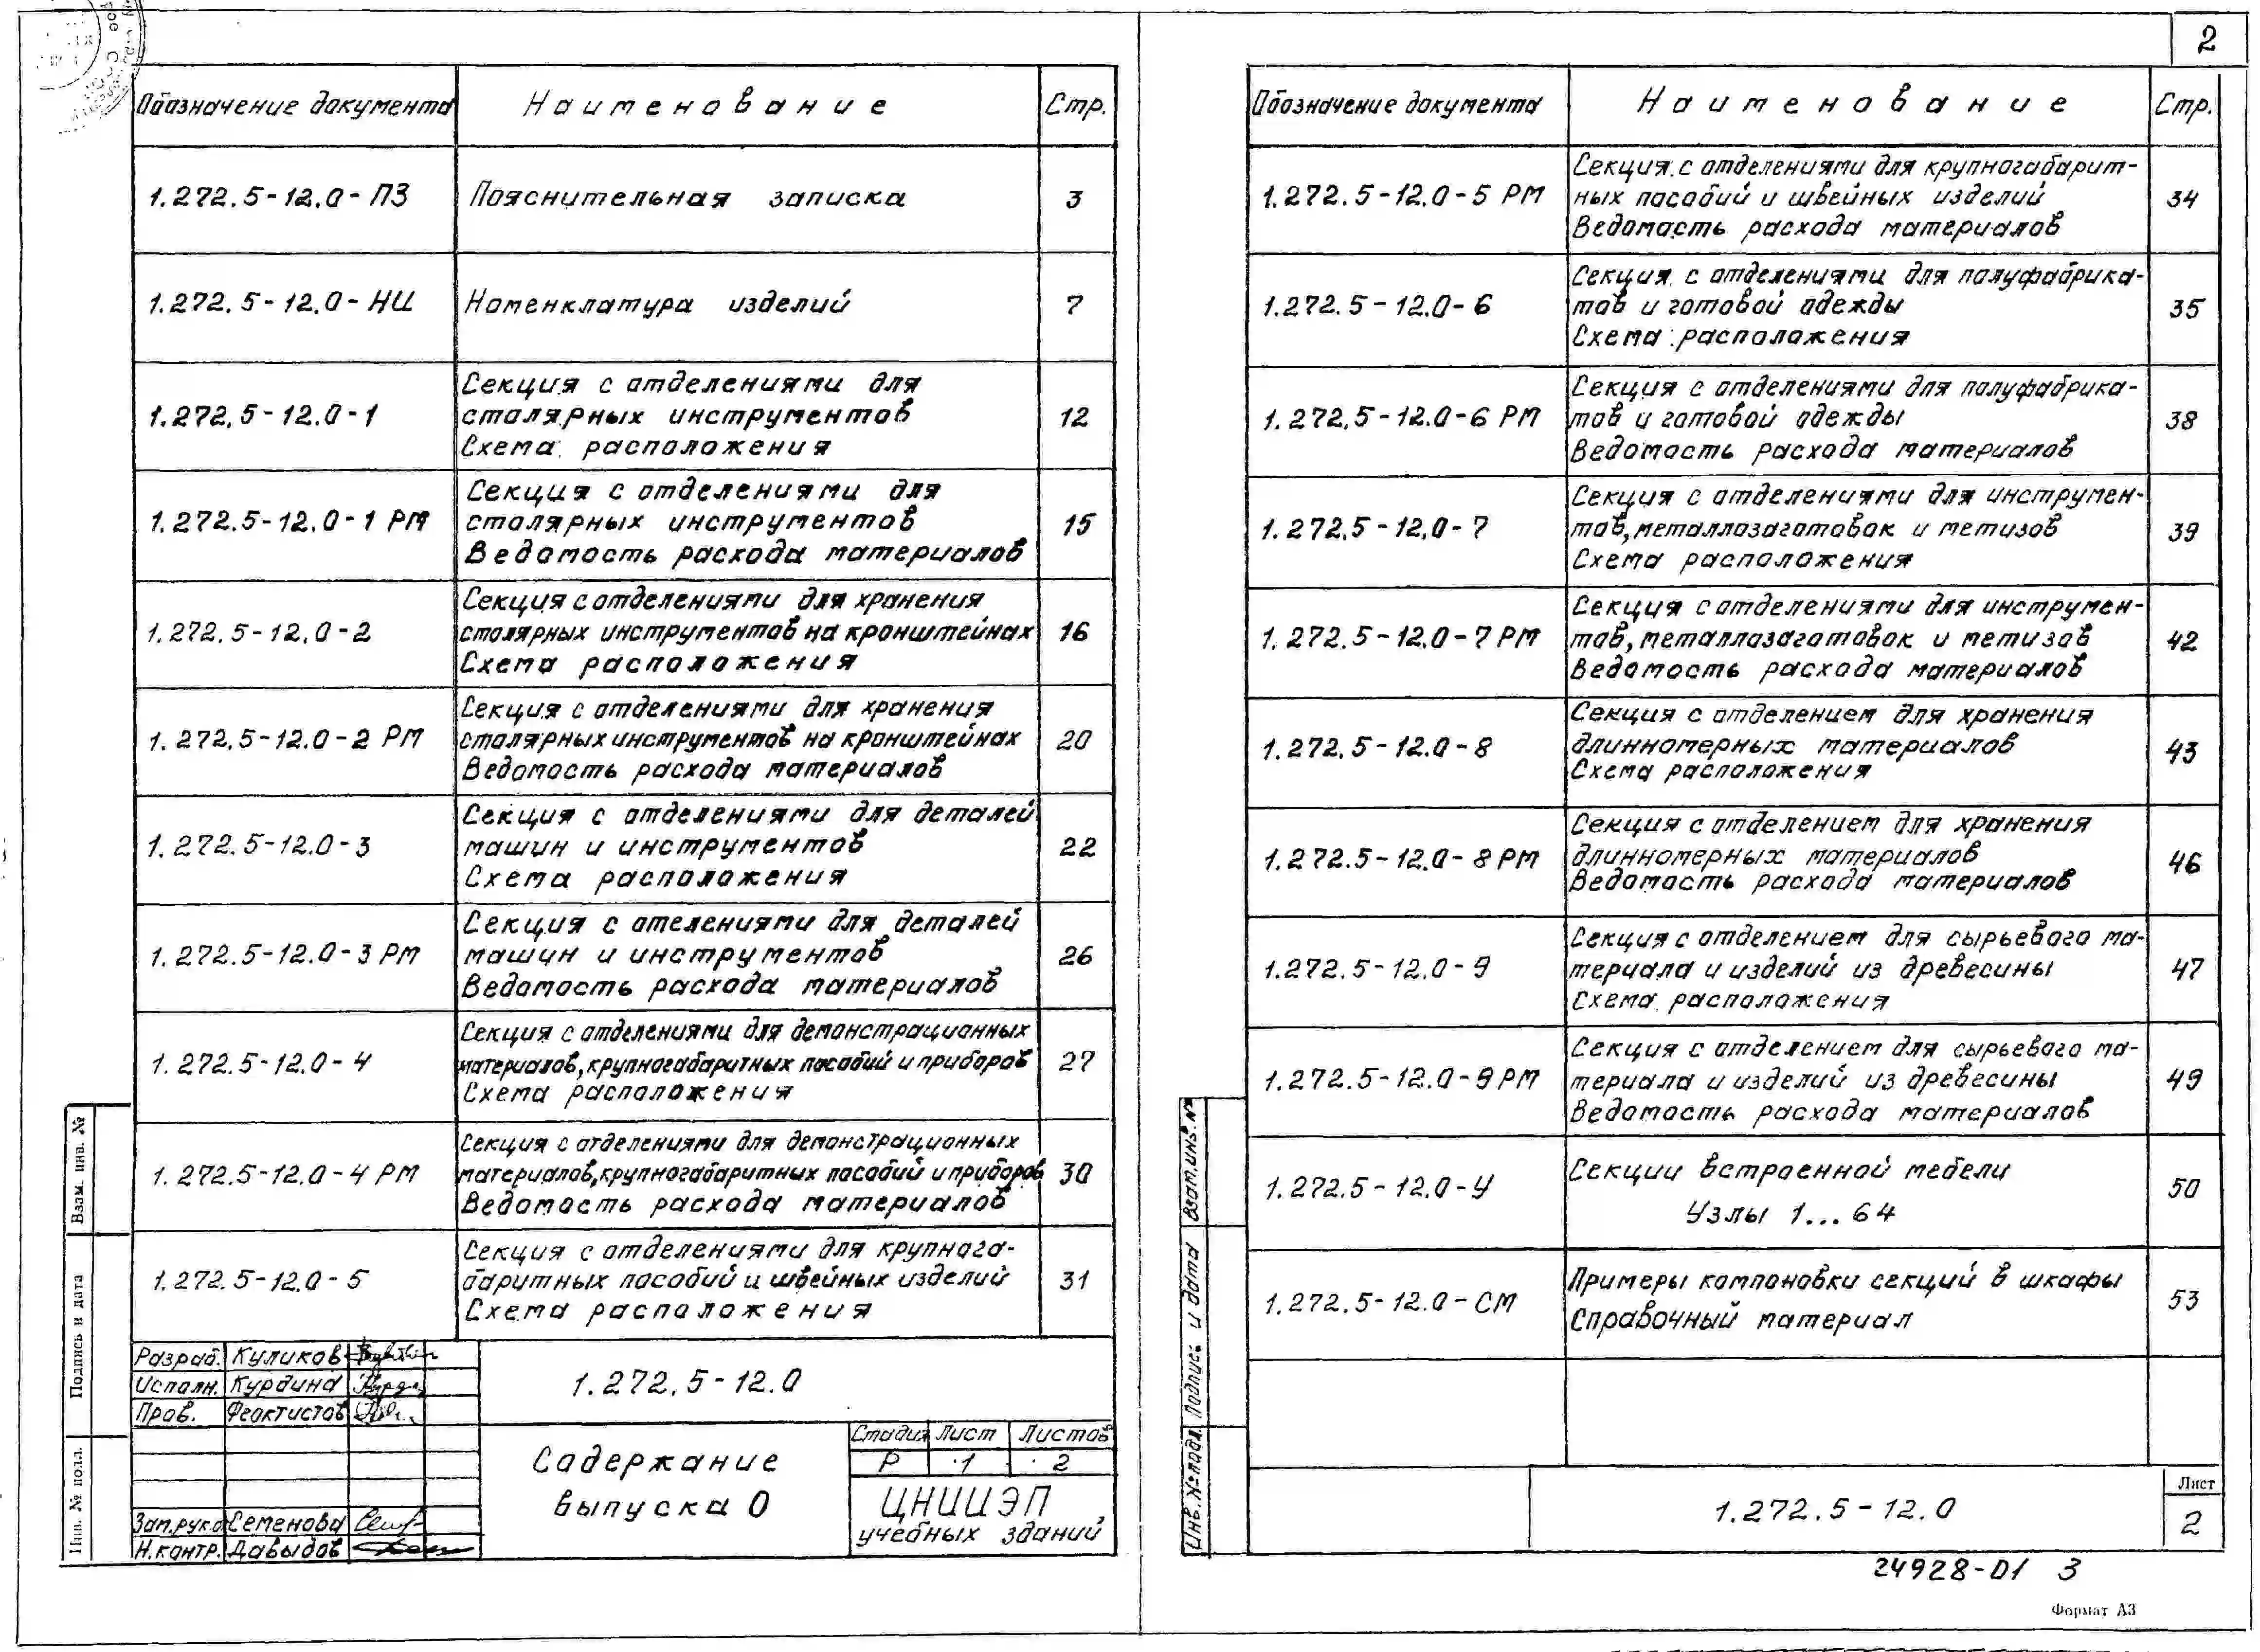 2
Обозначение документа Наименование Стр.
1.272.5-12.0-ПЗ Пояснительная записка 3
1.272.5-12.0-НИ Номенклатура изделий 7
Секция с отделениями для
1.272.5-12.0-1 столярных инструментов 12
Схема расположения
Секция с отделениями для
1.272.5-12.0-1 РМ столярных инструментов 15
Ведомость расхода материалов
Секция с отделениями для хранения
1.272.5-12.0-2 столярных инструментов на кронштейнах 16
Схема расположения
Секция с отделениями для хранения
1.272.5-12.0-2 РМ столярных инструментов на кронштейнах 20
Ведомость расхода материалов
Секция с отделениями для деталей
1.272.5-12.0-3 машин и инструментов 22
Схема расположения
Секция с отелениями для деталей
1.272.5-12.0-3 РМ машин и инструментов 26
Ведомость расхода материалов
Секция с отделениями для демонстрационных
1.272.5-12.0-4 материалов, крупногабаритных пособий и приборов 27
Схема расположения
Секция с отделениями для демонстрационных
1.272.5-12.0-4 РМ материалов, крупногабаритных пособий и приборов 30
Ведомость расхода материалов
Секция с отделениями для крупнога-
1.272.5-12.0-5 баритных пособий и швейных изделий 31
Схема расположения
Разраб. Куликов
Исполн. Курдина
Пров. Феоктистов
Зам.рук.о Семенова
Н.контр. Давыдов
1.272.5-12.0
Содержание
выпуска 0
Стадия Лист Листов
Р 1 2
ЦНИИЭП
учебных зданий
Взам. инв. №
Подпись и дата
Инв. № подл.
Обозначение документа Наименование Стр.
Секция с отделениями для крупногабарит-
1.272.5-12.0-5 РМ ных пособий и швейных изделий 34
Ведомость расхода материалов
Секция с отделениями для полуфабрика-
1.272.5-12.0-6 тов и готовой одежды 35
Схема расположения
Секция с отделениями для полуфабрика-
1.272.5-12.0-6 РМ тов и готовой одежды 38
Ведомость расхода материалов
Секция с отделениями для инструмен-
1.272.5-12.0-7 тов, металлозаготовок и метизов 39
Схема расположения
Секция с отделениями для инструмен-
1.272.5-12.0-7 РМ тов, металлозаготовок и метизов 42
Ведомость расхода материалов
Секция с отделением для хранения
1.272.5-12.0-8 длинномерных материалов 43
Схема расположения
Секция с отделением для хранения
1.272.5-12.0-8 РМ длинномерных материалов 46
Ведомость расхода материалов
Секция с отделением для сырьевого ма-
1.272.5-12.0-9 териала и изделий из древесины 47
Схема расположения
Секция с отделением для сырьевого ма-
1.272.5-12.0-9 РМ териала и изделий из древесины 49
Ведомость расхода материалов
Секции встроенной мебели
1.272.5-12.0-У 50
Узлы 1...64
Примеры компоновки секций в шкафы
1.272.5-12.0-СМ 53
Справочный материал
Взам.инв.№
Подпись и дата
Инв.№подл.
1.272.5-12.0
Лист
2
24928-01 3
Формат А3